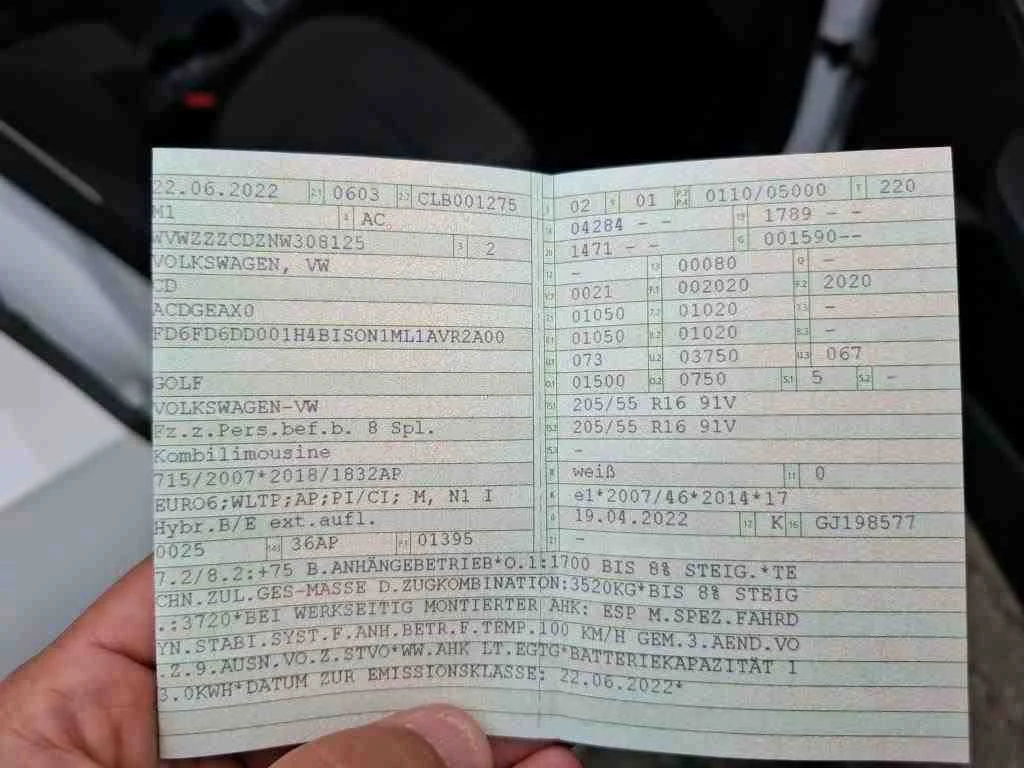 22.06.2022 2.1 0603 2.2 CLB001275
M1 AC
WVWZZZCDZNW308125 3 2
VOLKSWAGEN, VW
CD
ACDGEAX0
FD6FD6DD001H4BISON1ML1AVR2A00
GOLF
VOLKSWAGEN-VW
Fz.z.Pers.bef.b. 8 Spl.
Kombilimousine
715/2007*2018/1832AP
EURO6;WLTP;AP;PI/CI; M, N1 I
Hybr.B/E ext.aufl.
0025 14.1 36AP P.1 01395
02 9 01 P.2 P.4 0110/05000 T 220
18 04284 - - 19 1789 - -
20 1471 - - G 001590--
12 - 13 00080 Q -
V.7 0021 F.1 002020 F.2 2020
7.1 01050 7.2 01020 7.3 -
8.1 01050 8.2 01020 8.3 -
U.1 073 U.2 03750 U.3 067
O.1 01500 O.2 0750 S.1 5 S.2 -
15.1 205/55 R16 91V
15.2 205/55 R16 91V
15.3 -
R weiß 11 0
K e1*2007/46*2014*17
6 19.04.2022 17 K 16 GJ198577
21 -
7.2/8.2:+75 B.ANHÄNGEBETRIEB*O.1:1700 BIS 8% STEIG.*TE
CHN.ZUL.GES-MASSE D.ZUGKOMBINATION:3520KG*BIS 8% STEIG
.:3720*BEI WERKSEITIG MONTIERTER AHK: ESP M.SPEZ.FAHRD
YN.STABI.SYST.F.ANH.BETR.F.TEMP.100 KM/H GEM.3.AEND.VO
.Z.9.AUSN.VO.Z.STVO*WW.AHK LT.EGTG*BATTERIEKAPAZITÄT 1
3.0KWH*DATUM ZUR EMISSIONSKLASSE: 22.06.2022*